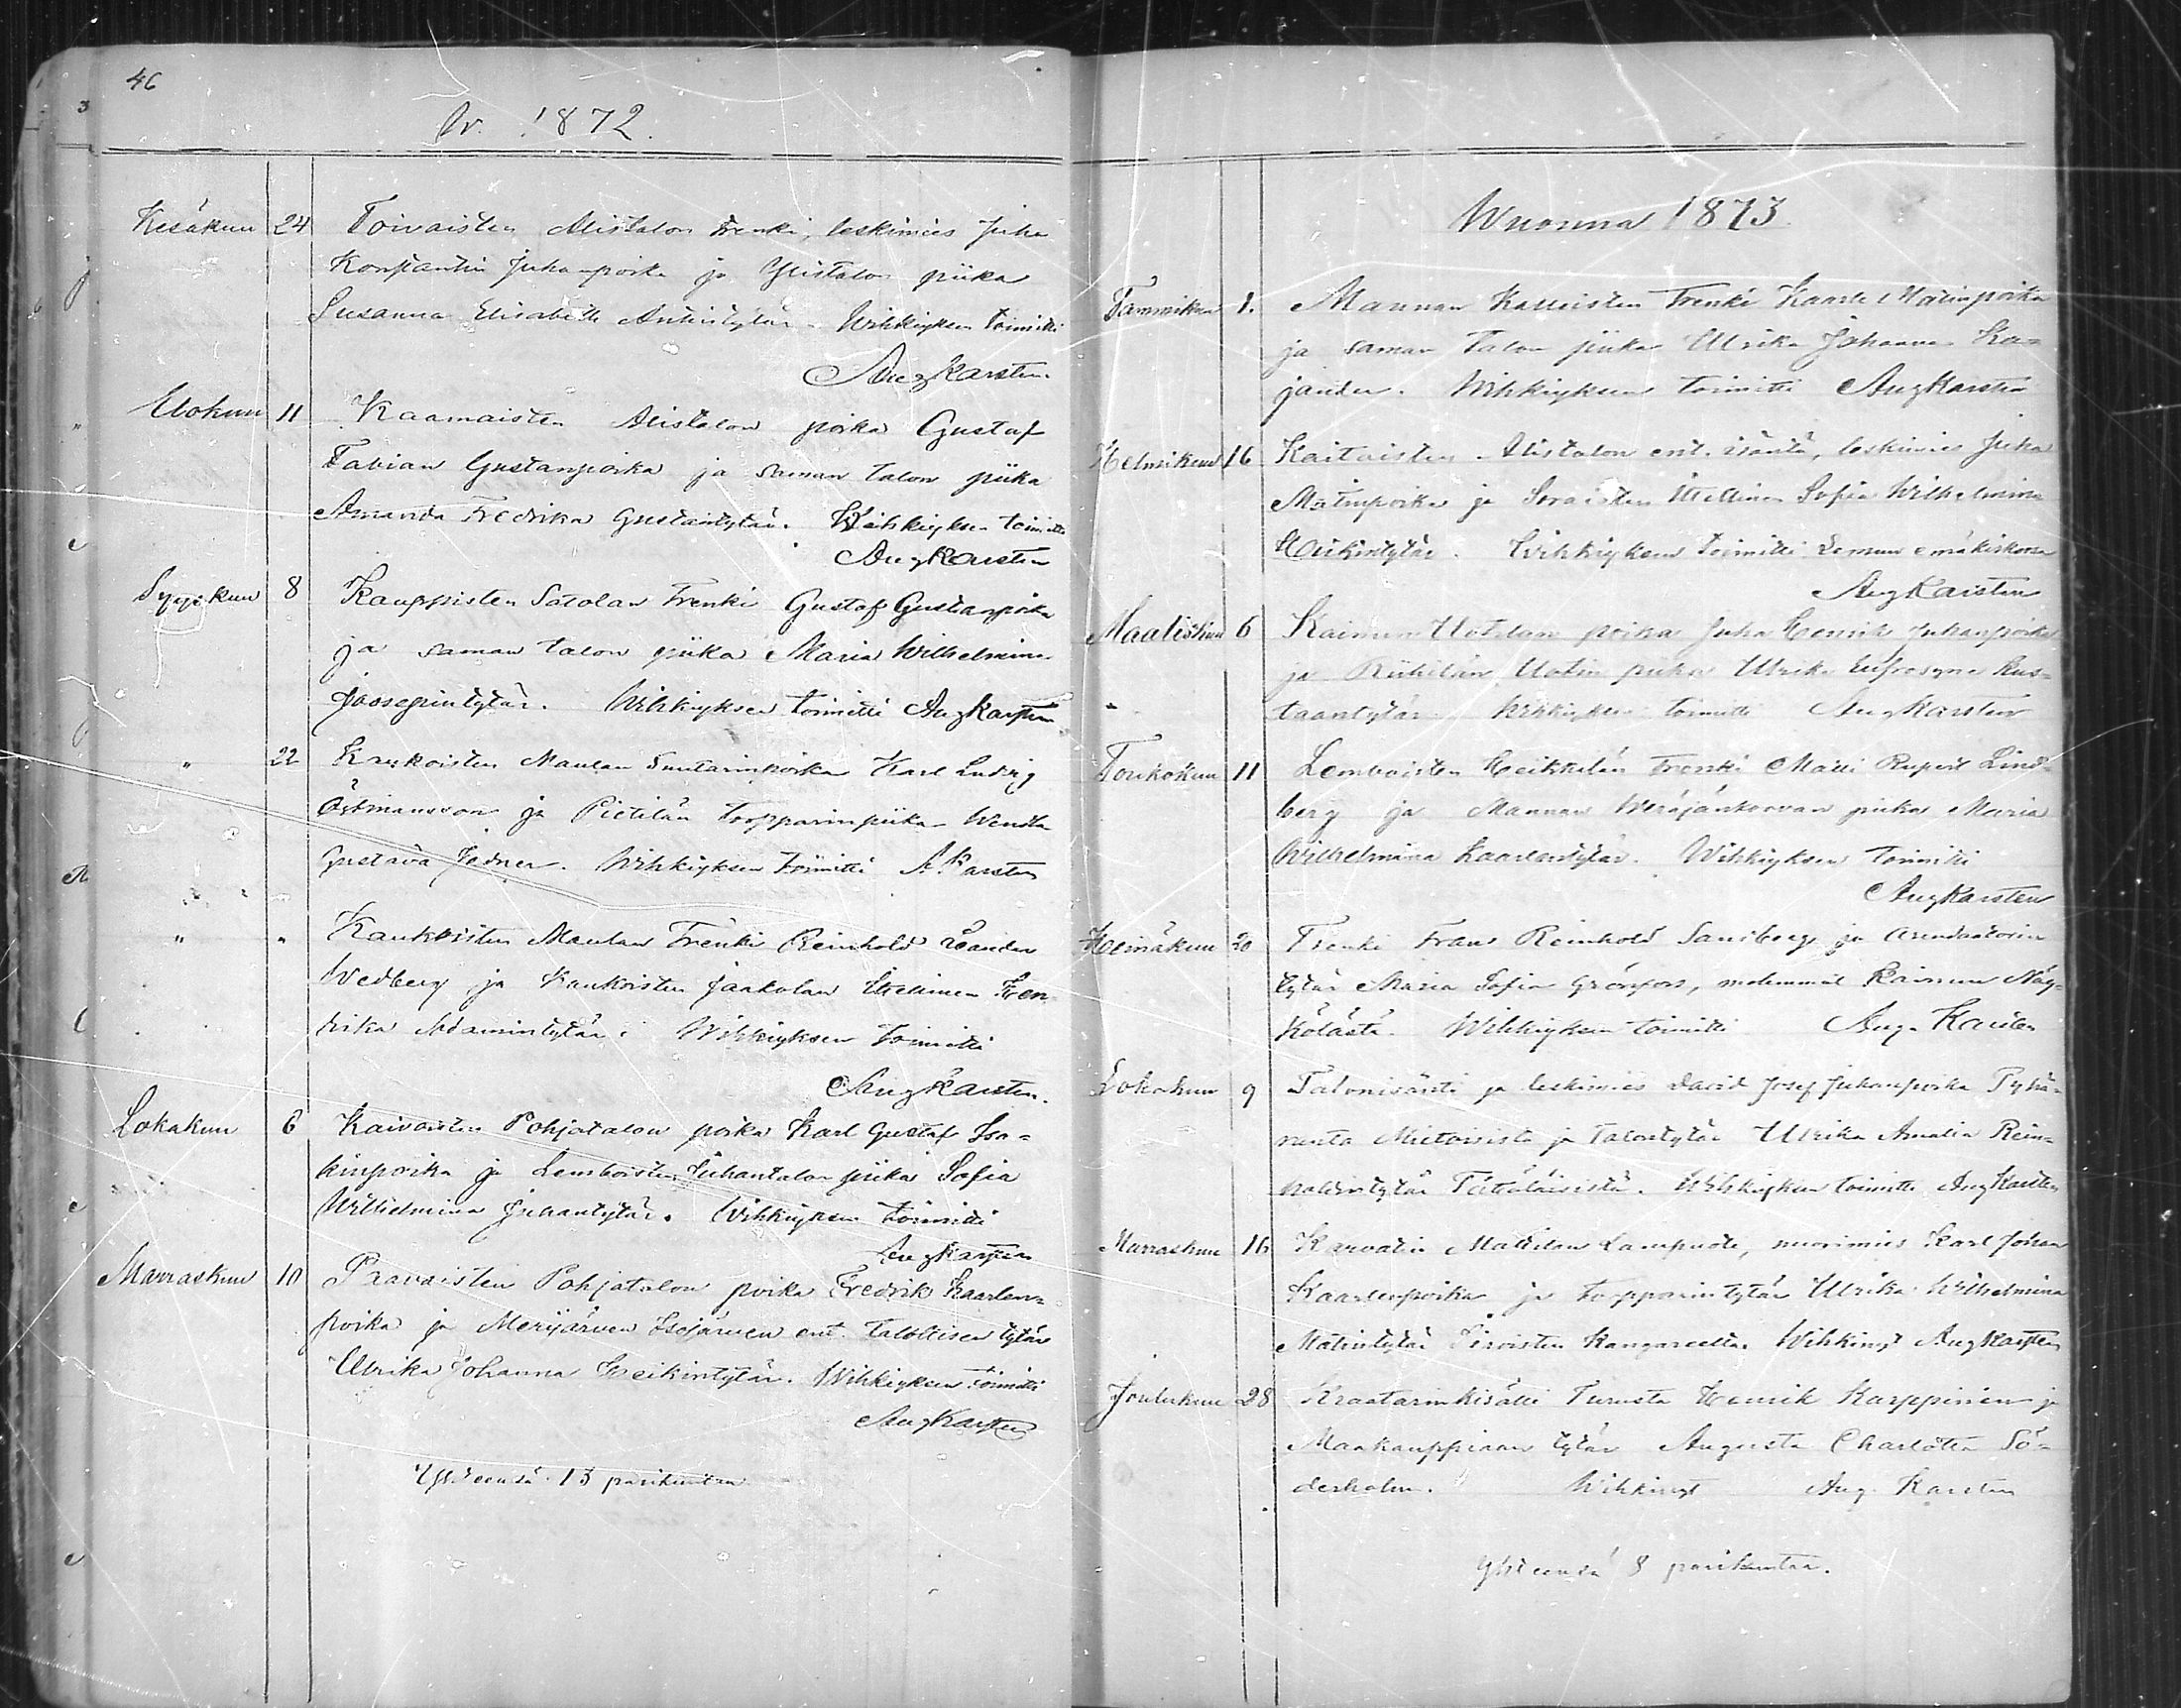 46
Vv. 1872.
Kesäkuu 24 Toivaisten Alistalon trenki, leskimies Juha
Konstantin Juhanpoika ja Ylistalon piika
Susanna Elisabeth Antintytär. Wihkiyksen toimitti
Aug Karsten.
Elokuu 11 Kaamaisten Alistalon poika Gustaf
Fabian Gustanpoika ja saman talon piika
Amanda Fredrika Gustantytär. Wihkiyksen toimitti
Aug Karsten
Syyskuu 8 Kauppisten Satolan trenki Gustaf Gustanpoika
ja saman talon piika Maria Wilhelmina
Joosepintytär. Wihkiyksen toimitti Aug Karsten
" 22 Kaukoisten Maulan Suutarinpoika Karl Ludvig
Östmansson ja Pietilän torpparinpiika Wendla
Gustava . Wihkiyksen toimitti A Karsten
" " Kaukoisten Maulan Trenki Reinhold Leander
Wedberg ja Kaukoisten Jaakolan Itsellinen Hen
rika Adamintytär. Wihkiyksen toimitti
Aug Karsten.
Lokakuu 6 Kaivaisten Pohjatalon poika Karl Gustaf Isa=
kinpoika ja Lemboisten Juhantalon piika Sofia
Wilhelmina Juhantytär. Wihkiyksen toimitti
Aug Karsten
Marraskuu 10 Paavaisten Pohjatalon poika Fredrik Kaarlen=
poika ja Merijärven Isojärven ent. talollisen tytär
Ulrika Johanna Heikintytär. Wihkiyksen toimitti
Aug Karsten
Yhteensä 13 parikuntaa
Wuonna 1873
Tammikuu 1. Mannan Kalleisten Trenki Kaarle Matinpoika
ja saman talon piika Ulrika Johanna Ka=
jander. Wihkiyksen toimitti Aug Karsten
Helmikuu 16 Kaitaisten Alistalon ent. isäntä, leskimies Juha
Matinpoika ja Itsellinen Sofia Wilhelmina
Heikintytär. Wihkiyksen toimitti Lemun emäkirkossa
Aug Karsten
Maaliskuu 6 Kaimon Uotilan poika Juha Henrik Juhanpoika
ja Riihilän Uotin piika Ulrika Eufrosyne Kus=
taantytär Wihkiyksen toimitti Aug Karsten
Toukokuu 11 Lemboisten Heikkilän trenki Matti Rupert Lind=
berg ja Mannan piika Maria
Wilhelmina Kaarlentytär. Wihkiyksen toimitti
Aug Karsten
Heinäkuu 20 Trenki Frans Reinhold Sandberg ja arendaatorin
tytär Maria Sofia Grönfors, molemmat Kaimon Näy=
kölästä. Wihkiyksen toimitti Aug. Karsten
Lokakuu 9 Talonisäntä ja leskimies David Josef Juhanpoika Pyhä=
rannta Mietoisista ja talontytär Ulrika Amalia Rein=
holdintytär . Wihkiyksen toimitti Aug Karsten
Marraskuu 16 Karvatin Mattilan Lampuoti, nuorimies Karl Johan
Kaarlenpoika ja torpparintytär Ulrika Wilhelmina
Matintytär Kangareelta. Wihkinyt Aug Karsten
Joulukuu 28 Kraatarinkisälli Turusta Henrik Karppinen ja
Maakauppiaan tytär Augusta Charlotta Sö=
derholm. Wihkinyt Aug. Karsten
Yhteensä 8 parikuntaa.